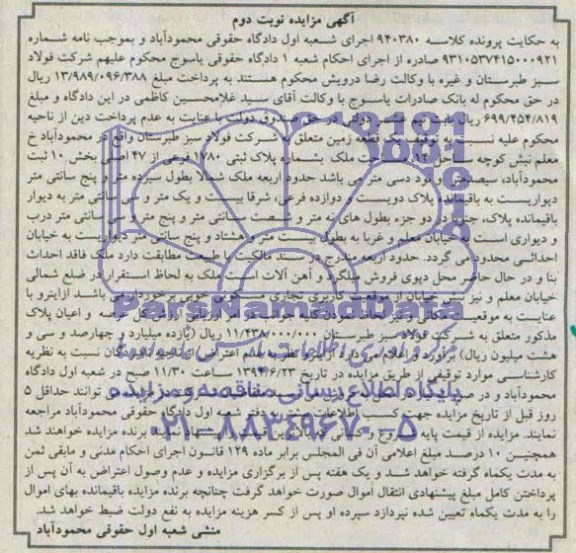 آگهی مزایده نوبت دوم
به حکایت پرونده کلاسه ۹۴۰۳۸۰ اجرای شعبه اول دادگاه حقوقی محمودآباد و بموجب نامه شماره
۹۳۱۰۵۳۷۴۱۵۰۰۰۹۲۱ صادره از اجرای احکام شعبه ۱ دادگاه حقوقی یاسوج محکوم علیهم شرکت فولاد
سبز طبرستان و غیره با وکالت رضا درویش محکوم هستند به پرداخت مبلغ ۱۳/۹۸۹/۰۹۶/۳۸۸ ریال
در حق محکوم له بانک صادرات یاسوج با وکالت آقای سید غلامحسین کاظمی در این دادگاه و مبلغ
۶۹۹/۴۵۴/۸۱۹ ریال بابت نیم عشر دولتی در حق صندوق دولت با عنایت به عدم پرداخت دین از ناحیه
محکوم علیه نسبت به توقیف یک قطعه زمین متعلق به شرکت فولاد سبز طبرستان واقع در محمودآباد خ
معلم نبش کوچه ساحل مساحت ملک بشماره پلاک ثبتی ۱۷۸۰ فرعی از ۴۷ اصلی بخش ۱۰ ثبت
محمودآباد، سیصد و نود دسی متر می باشد حدود اربعه ملک شمالا بطول سیزده متر و پنج سانتی متر
دیواریست به باقیمانده پلاک دویست و دوازده فرعی، شرقا بیست و یک متر و سی سانتی متر به دیوار
باقیمانده پلاک، جنوبا در دو جزء بطول های نه متر و شصت سانتی متر و پنج متر و سی سانتی متر درب
و دیواری است به خیابان معلم و غربا به بطول بیست متر و هشتاد و پنج سانتی متر دیواریست به خیابان
احداثی محدود می گردد. حدود اربعه مندرج در سند مالکیت با طبیعت مطابقت دارد ملک فاقد احداث
بنا و در حال حاضر محل دپوی فروش میلگرد و آهن آلات است ملک به لحاظ استقرار در ضلع شمالی
خیابان معلم و نیز نبش خیابان از موقعیت کاربری تجاری مسکونی خوبی برخوردار می باشد ازاینرو با
عنایت به موقعیت عرصه و اعیان پلاک
مذکور متعلق به شرکت فولاد سبز طبرستان ۱۱/۴۳۸/۰۰۰/۰۰۰ ریال (یازده میلیارد و چهارصد و سی و
هشت میلیون ریال) برآورد و اعلام می دارد ازاینرو نظربه عدم اعتراض از ناحیه نامبردگان نسبت به نظریه
کارشناسی موارد توقیفی از طریق مزایده در تاریخ ۱۳۹۴/۶/۲۳ ساعت ۱۱/۳۰ صبح در شعبه اول دادگاه
محمودآباد و در توانند حداقل ۵
روز قبل از تاریخ مزایده جهت کسب اطلاعات بیشتر به دفتر شعبه اول دادگاه حقوقی محمودآباد مراجعه
نمایند. مزایده از قیمت پایه شروع و کسانی که بالاترین قیمت را پیشنهاد نمایند برنده مزایده خواهند شد
همچنین ۱۰ درصد مبلغ اعلامی آن فی المجلس برابر ماده ۱۲۹ قانون اجرای احکام مدنی و مابقی ثمن
به مدت یکماه گرفته خواهد شد و یک هفته پس از برگزاری مزایده و عدم وصول اعتراض به آن پس از
پرداختن کامل مبلغ پیشنهادی انتقال اموال صورت خواهد گرفت چنانچه برنده مزایده باقیمانده بهای اموال
را به مدت یکماه تعیین شده نپردازد سپرده او پس از کسر هزینه مزایده به نفع دولت ضبط خواهد شد.
منشی شعبه اول حقوقی محمودآباد
ParsNamadData
پایگاه اطلاع رسانی مناقصه و مزایده
۰۲۱-۸۸۳۴۹۶۷۰-۵